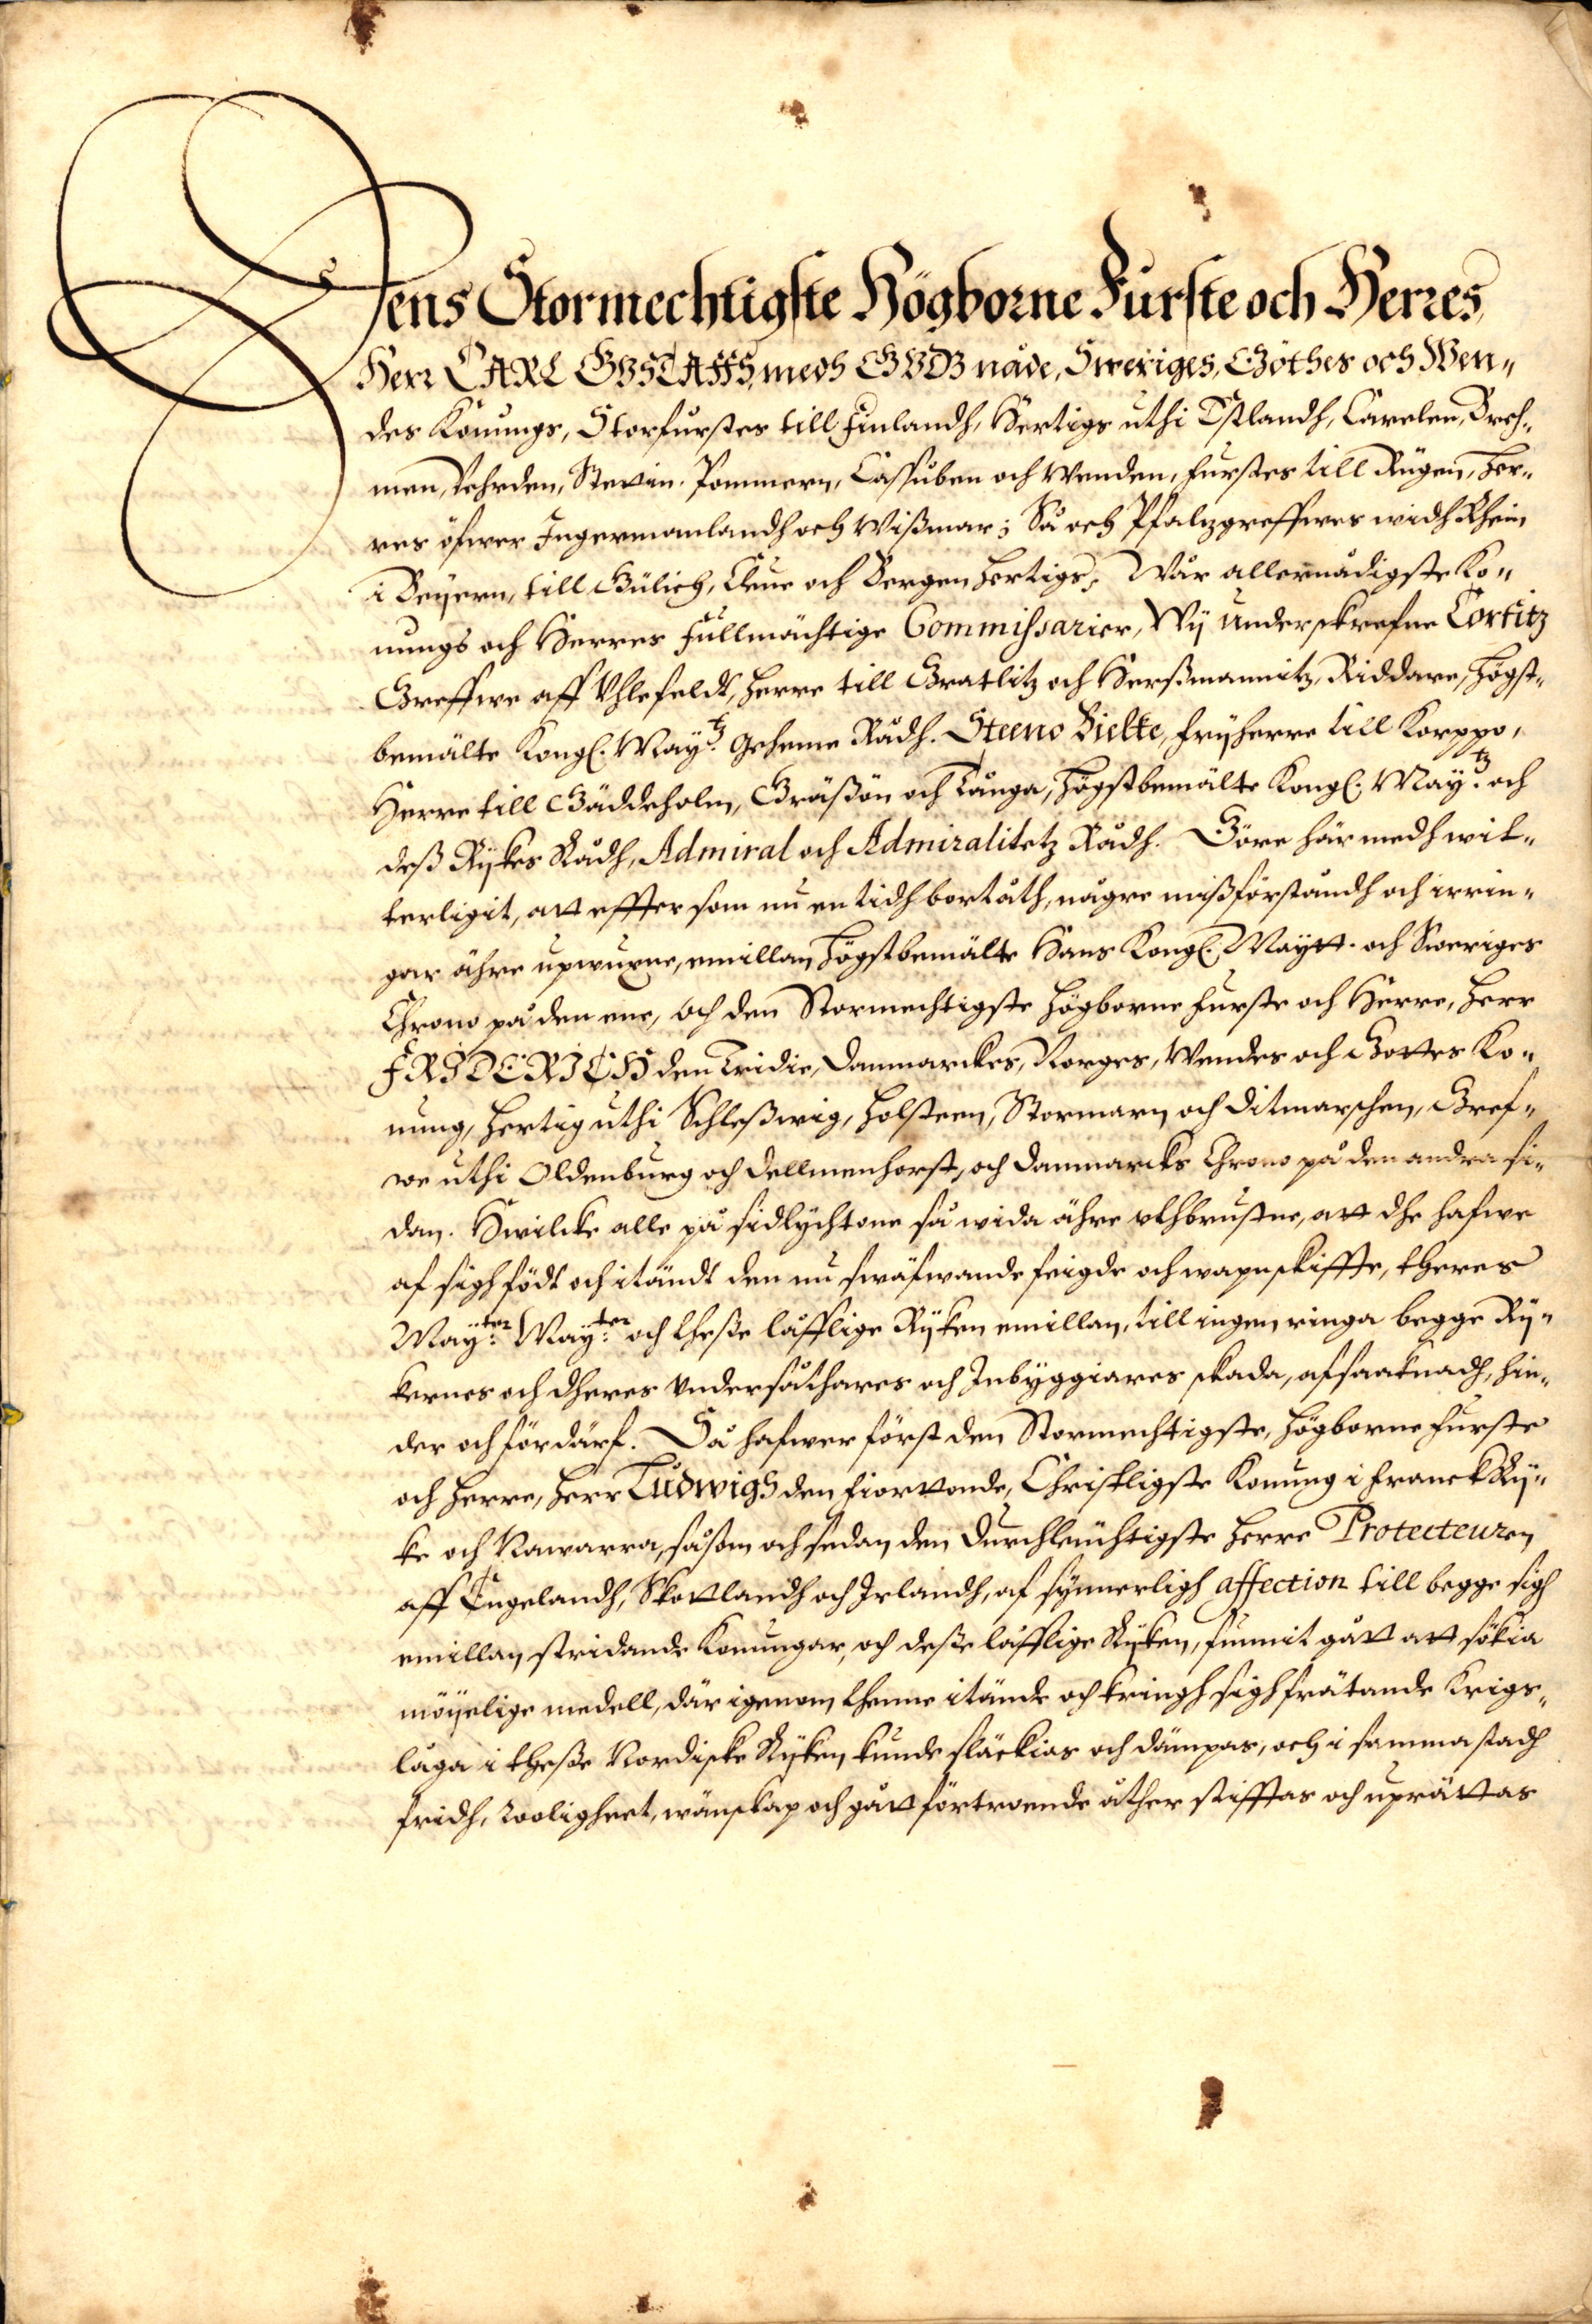 Dens Stormechtigste Högborne Furste och Herres,
Herr CARL GUSTAFFS, medh GUDZ nåde, Sweriges, Göthes och Wen-
des Konungs, Storfurstes till Finlandh, Hertigs uthi Estlandh, Carelen, Breh-
men, Vehrden, Stettin. Pommern, Cassuben och Wenden, Furstes till Rügen, Her-
res öfwer Ingermanlandh och Wißmar; Så och Pfaltzgreffwes widh Rhein
i Beÿern, till Gülich, Cleue och Bergen Hertigs; Wår allernådigste Ko-
nungs och Herres Fullmächtige Commissarier, Wÿ underskrefne Corfitz
Greffwe aff Uhlefeldt, Herre till Gratlitz och Herßmannitz, Riddare, Högst-
bemälte Kongl. Maÿ:tz Geheme Rådh. Steeno Bielke, Frÿherre till Korppo,
Herre till Gäddeholm, Gräßön och Tånga, Högstbemälte Kongl. Maÿ:tz och
deß Rÿkes Rådh, Admiral och Admiralitetz Rådh. Göre här medh wit-
terligit, att effter som nu en tidh bortåth, någre mißförståndh och irrin-
gar ähre upwuxne, emillan Högstbemälte Hans Kongl. Maÿtt. och Sweriges
Chrono på den ene, och den Stormechtigste Högborne Furste och Herre, Herr
FRIDERICH den Tridie, Danmarckes, Norges, Wendes och Gottes Ko-
nung, Hertig uthi Schleßwig, Holsteen, Stormarn och Ditmarschen, Gref-
we uthi Oldenburg och Dellmenhorst, och Danmarcks Chrono på den andra si-
dan. Hwilcke alle på sidlychtone så wida ähre uthbrustne, att dhe hafwe
af sigh födt och itändt den nu swäfwande feigde och wapnskiffte, theres
Maÿ:ter Maÿ:ter och thesse låfflige Rÿken emillan, till ingen ringa begge Rÿ-
kernes och dheres Undersåthares och Inbÿggiares skada, afsaaknadh, hin-
der och fördärf. Då hafwer först den Stormechtigste, Högborne Furste
och Herre, Herr Ludwigh den Fiorttonde, Christligste Konung i Franckrÿ-
ke och Nawarra, såsom och sedan den Durchleuchtigste Herre Protecteuren
aff Engelandh, Skottlandh och Irlandh, af sÿnnerligh affection till begge sigh
emillan stridande Konungar, och desse låfflige Rÿken, funnit gått att sökia
möÿelige medell, där igenom thenne itände och kringh sigh frätande Krigs-
låga i thesse Nordiske Rÿken, kunde släckias och dämpas, och i samma stadh
fridh, Rooligheet, wänskap och gått förtroende åther stifftas och uprättas